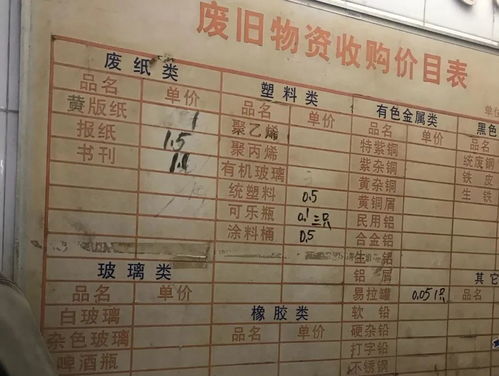 废旧物资收购价目表
废纸类
品名 单价
黄版纸 1
报纸 1.5
书刊 1.1
玻璃类
品名 单价
白玻璃
杂色玻璃
啤酒瓶
塑料类
品名 单价
聚乙烯
聚丙烯
有机玻璃
统塑料 0.5
可乐瓶 0.1 三只
涂料桶 0.5
橡胶类
品名 单价
有色金属类
品名 单价
特紫铜
紫杂铜
黄杂铜
黄铜屑
民用铝
合金铝
生铝
铝屑
易拉罐 0.05 1只
软铅
硬杂铅
打字铅
不锈钢
黑色
品名
统废钢
铁皮
生铁
其它
品名